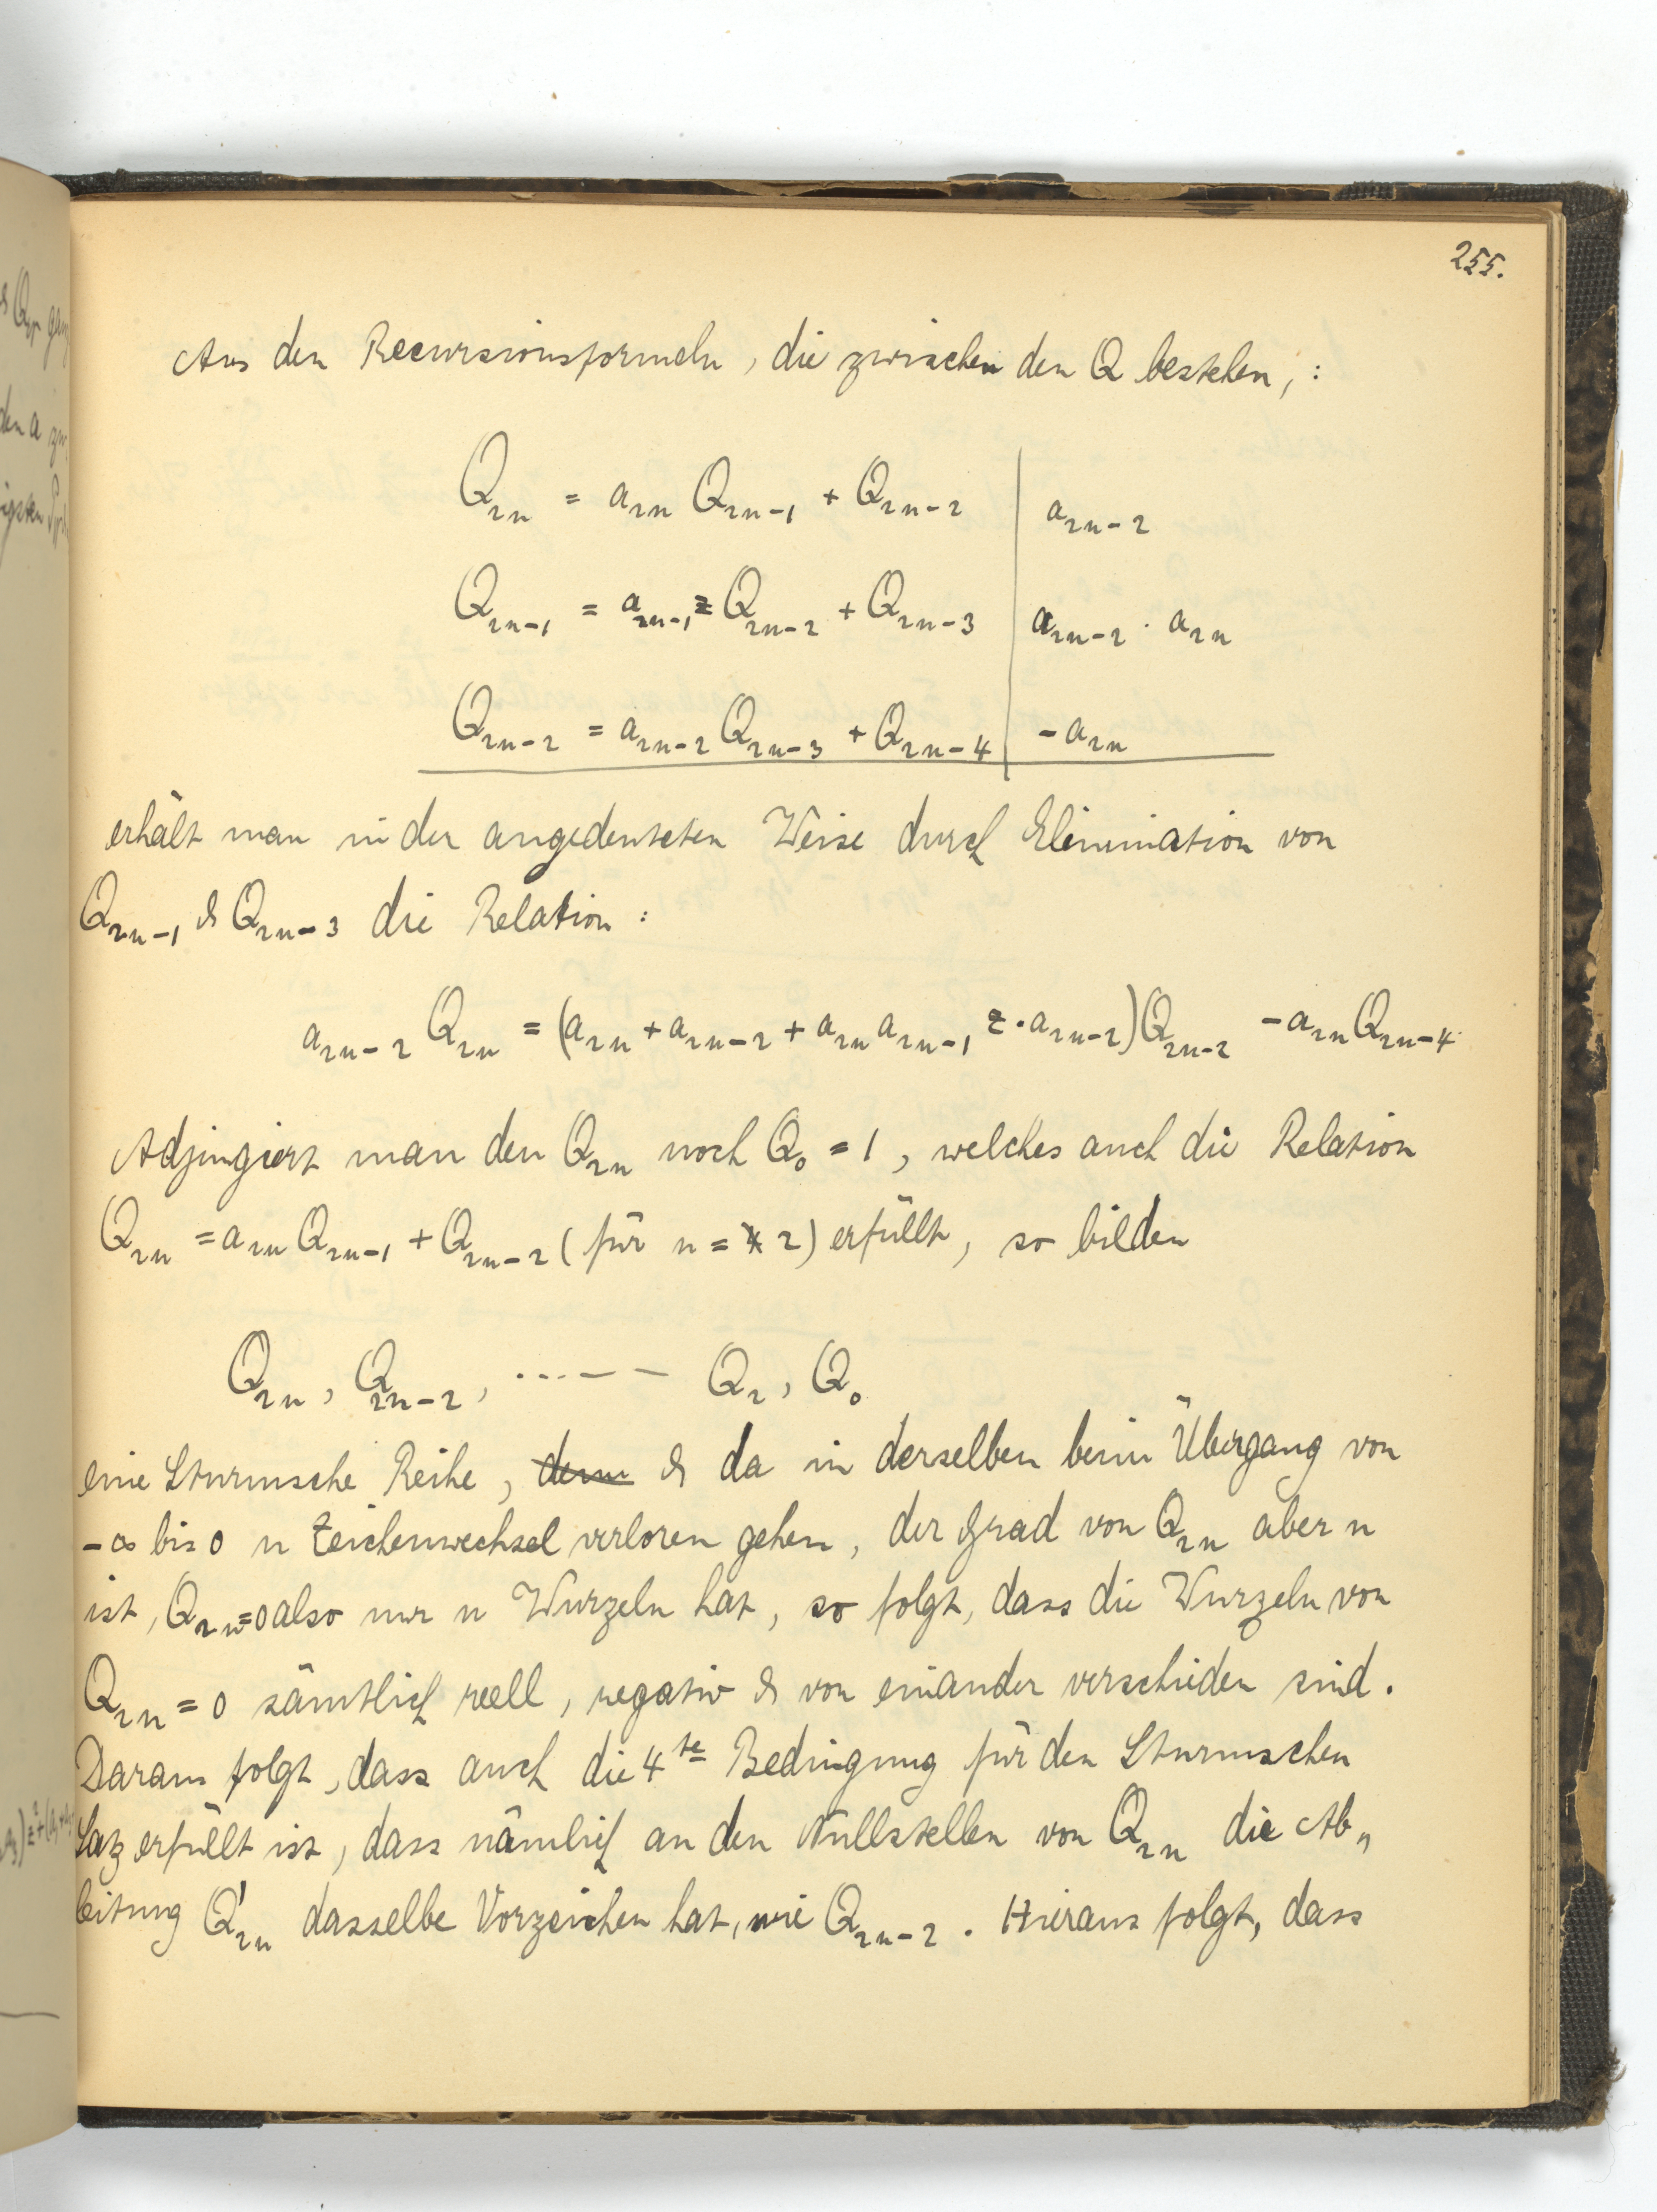 255.
Aus den Recursionsformeln, die zwischen den Q bestehen, :
Q₂ₙ = a₂ₙ Q₂ₙ₋₁ + Q₂ₙ₋₂ | a₂ₙ₋₂
Q₂ₙ₋₁ = a₂ₙ₋₁ z Q₂ₙ₋₂ + Q₂ₙ₋₃ | a₂ₙ₋₂ · a₂ₙ
Q₂ₙ₋₂ = a₂ₙ₋₂ Q₂ₙ₋₃ + Q₂ₙ₋₄ | - a₂ₙ
erhält man in der angedeuteten Weise durch Elimination von
Q₂ₙ₋₁ & Q₂ₙ₋₃ die Relation :
a₂ₙ₋₂ Q₂ₙ = (a₂ₙ + a₂ₙ₋₂ + a₂ₙ a₂ₙ₋₁ z · a₂ₙ₋₂) Q₂ₙ₋₂ - a₂ₙ Q₂ₙ₋₄.
Adjungiert man den Q₂ₙ noch Q₀ = 1, welches auch die Relation
Q₂ₙ = a₂ₙ Q₂ₙ₋₁ + Q₂ₙ₋₂ (für n = 2) erfüllt, so bilden
Q₂ₙ, Q₂ₙ₋₂, ...... Q₂, Q₀
eine Sturmsche Reihe, denn & da in derselben beim Übergang von
-∞ bis 0 n Zeichenwechsel verloren gehen, der Grad von Q₂ₙ aber n
ist, Q₂ₙ=0 also nur n Wurzeln hat, so folgt, dass die Wurzeln von
Q₂ₙ = 0 sämtlich reell, negativ & von einander verschieden sind.
Daraus folgt, dass auch die 4te Bedingung für den Sturmschen
Satz erfüllt ist, dass nämlich an den Nullstellen von Q₂ₙ die Ab„
leitung Q'₂ₙ dasselbe Vorzeichen hat, wie Q₂ₙ₋₂. Hieraus folgt, dass